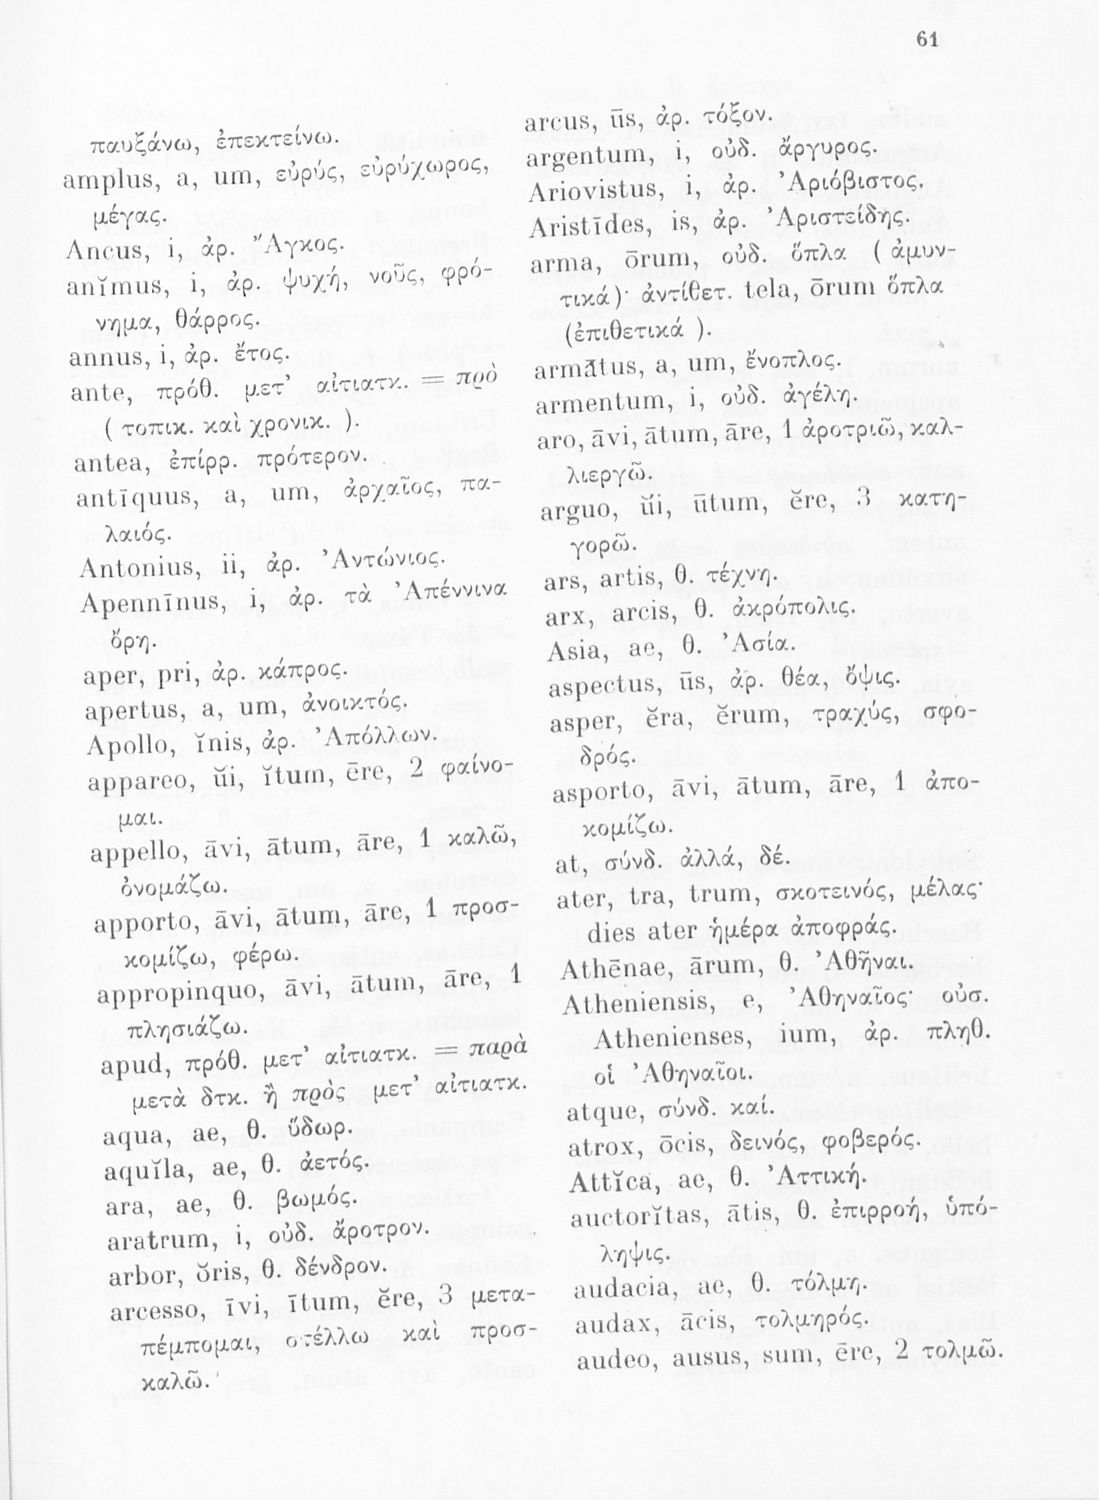 61
παυξάνω, ἐπεκτείνω.
amplus, a, um, εὐρύς, εὐρύχωρος,
μέγας.
Ancus, i, ἀρ. Ἄγκος.
anĭmus, i, ἀρ. ψυχή, νοῦς, φρό-
νημα, θάρρος.
annus, i, ἀρ. ἔτος.
ante, πρόθ. μετ' αἰτιατκ. = πρὸ
( τοπικ. καὶ χρονικ. ).
antea, ἐπίρρ. πρότερον.
antīquus, a, um, ἀρχαῖος, πα-
λαιός.
Antonius, ii, ἀρ. Ἀντώνιος.
Apennīnus, i, ἀρ. τὰ Ἀπέννινα
ὄρη.
aper, pri, ἀρ. κάπρος.
apertus, a, um, ἀνοικτός.
Apollo, ĭnis, ἀρ. Ἀπόλλων.
appareo, ŭi, ĭtum, ēre, 2 φαίνο-
μαι.
appello, āvi, ātum, āre, 1 καλῶ,
ὀνομάζω.
apporto, āvi, ātum, āre, 1 προσ-
κομίζω, φέρω.
appropinquo, āvi, ātum, āre, 1
πλησιάζω.
apud, πρόθ. μετ' αἰτιατκ. = παρὰ
μετὰ δτκ. ἢ πρὸς μετ' αἰτιατκ.
aqua, ae, θ. ὕδωρ.
aquĭla, ae, θ. ἀετός.
ara, ae, θ. βωμός.
aratrum, i, οὐδ. ἄροτρον.
arbor, ŏris, θ. δένδρον.
arcesso, īvi, ītum, ĕre, 3 μετα-
πέμπομαι, στέλλω καὶ προσ-
καλῶ.
arcus, ūs, ἀρ. τόξον.
argentum, i, οὐδ. ἄργυρος.
Ariovistus, i, ἀρ. Ἀριόβιστος.
Aristīdes, is, ἀρ. Ἀριστείδης.
arma, ōrum, οὐδ. ὅπλα ( ἀμυν-
τικά)· ἀντίθετ. tela, ōrum ὅπλα
(ἐπιθετικά ).
armātus, a, um, ἔνοπλος.
armentum, i, οὐδ. ἀγέλη.
aro, āvi, ātum, āre, 1 ἀροτριῶ, καλ-
λιεργῶ.
arguo, ŭi, ūtum, ĕre, 3 κατη-
γορῶ.
ars, artis, θ. τέχνη.
arx, arcis, θ. ἀκρόπολις.
Asia, ae, θ. Ἀσία.
aspectus, ūs, ἀρ. θέα, ὄψις.
asper, ĕra, ĕrum, τραχύς, σφο-
δρός.
asporto, āvi, ātum, āre, 1 ἀπο-
κομίζω.
at, σύνδ. ἀλλά, δέ.
ater, tra, trum, σκοτεινός, μέλας·
dies ater ἡμέρα ἀποφράς.
Athēnae, ārum, θ. Ἀθῆναι.
Atheniensis, e, Ἀθηναῖος· οὐσ.
Athenienses, ium, ἀρ. πληθ.
οἱ Ἀθηναῖοι.
atque, σύνδ. καί.
atrox, ōcis, δεινός, φοβερός.
Attĭca, ae, θ. Ἀττική.
auctorĭtas, ātis, θ. ἐπιρροή, ὑπό-
ληψις.
audacia, ae, θ. τόλμη.
audax, ācis, τολμηρός.
audeo, ausus, sum, ēre, 2 τολμῶ.